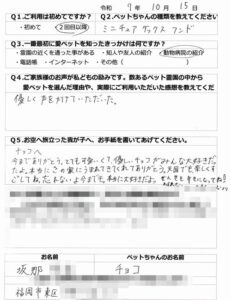 令和 7年 10月 15日
Q1.ご利用は初めてですか？ Q2.ペットちゃんの種類を教えてください
・初めて ・2回目以降 ミニチュア ダックス フンド
Q3.一番最初に愛ペットを知ったきっかけは何ですか？
・霊園の近くを通った事がある ・知人や友人の紹介 ・動物病院の紹介
・電話帳 ・インターネット ・その他（ ）
Q4.ご家族様のお声が私どもの励みです。数あるペット霊園の中から
愛ペットを選んだ理由や、実際にご利用いただいた感想を教えてください。
優しく声をかけていただいた。
Q5.お空へ旅立った我が子へ、お手紙を書いてあげてください。
チョコへ
今までありがとう。とても可愛いくて、優しい、チョコがみんな大好きだっ
たよ。本当にこの家にうまれてきてくれてありがとう。天国でも楽しくす
ごしてね。忘れないよ今まで、本当に大好きだよ。
お名前 ペットちゃんのお名前
チョコ
福岡市東区